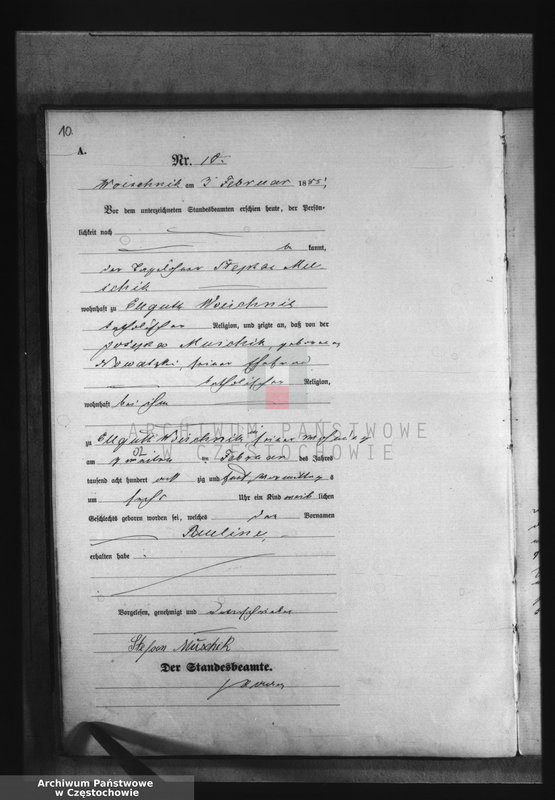 10.
A.
Nr. 10.
Woischnik am 3 Februar 1885
Vor dem unterzeichneten Standesbeamten erschien heute, der Persön-
lichkeit nach
be kannt,
der Mu-
schik
wohnhaft zu Ellguth Woischnik
katholischer Religion, und zeigte an, daß von der
Muschik, geborenen
Nowatzki, seiner Ehefrau
katholischer Religion,
wohnhaft bei ihm
zu Ellguth Woischnik seiner Wohnung
am zweiten im Februar des Jahres
tausend acht hundert acht zig und fünf Vormittags
um sechs Uhr ein Kind weib lichen
Geschlechts geboren worden sei, welches den Vornamen
Pauline
erhalten habe.
Vorgelesen, genehmigt und unterschrieben
Stefan Muschik
Der Standesbeamte.
ARCHIWUM PAŃSTWOWE
W CZĘSTOCHOWIE
Archiwum Państwowe
w Częstochowie